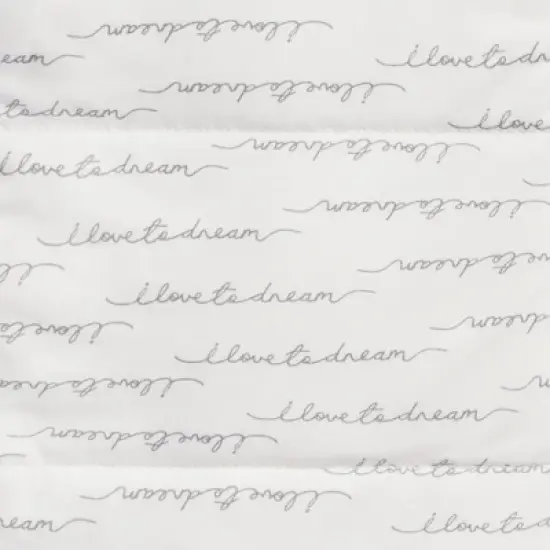 i love to dream
eam
i love to dr
i love to dream
to dream
i love
i love to dream
i love to dream
i love to dream
i love to dream
ve to dream
i l
i love to dream
dream
i love to
i love to dream
i love to dream
i love to dream
i love to dream
i love to dream
i love to dream
ream
i love to d